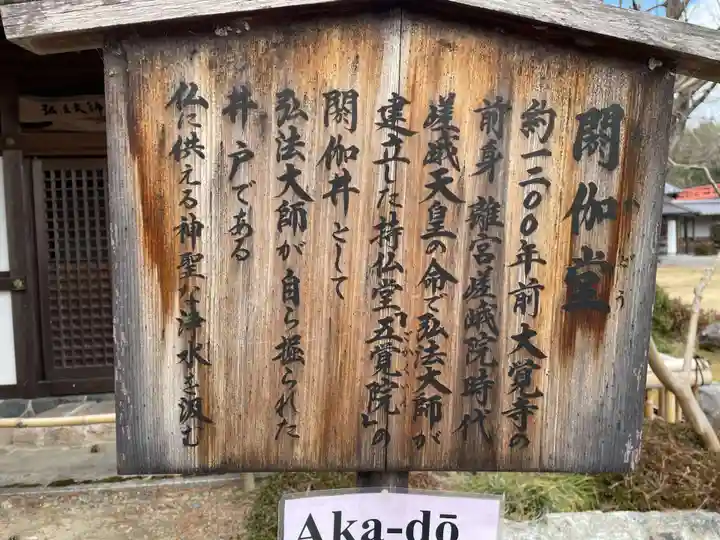 閼伽堂
約一二〇〇年前大覚寺の
前身離宮嵯峨院時代
嵯峨天皇の命で弘法大師が
建立した持仏堂「五覚院」の
閼伽井として
弘法大師が自ら掘られた
井戸である
仏に供える神聖な浄水を汲む
Aka-dō